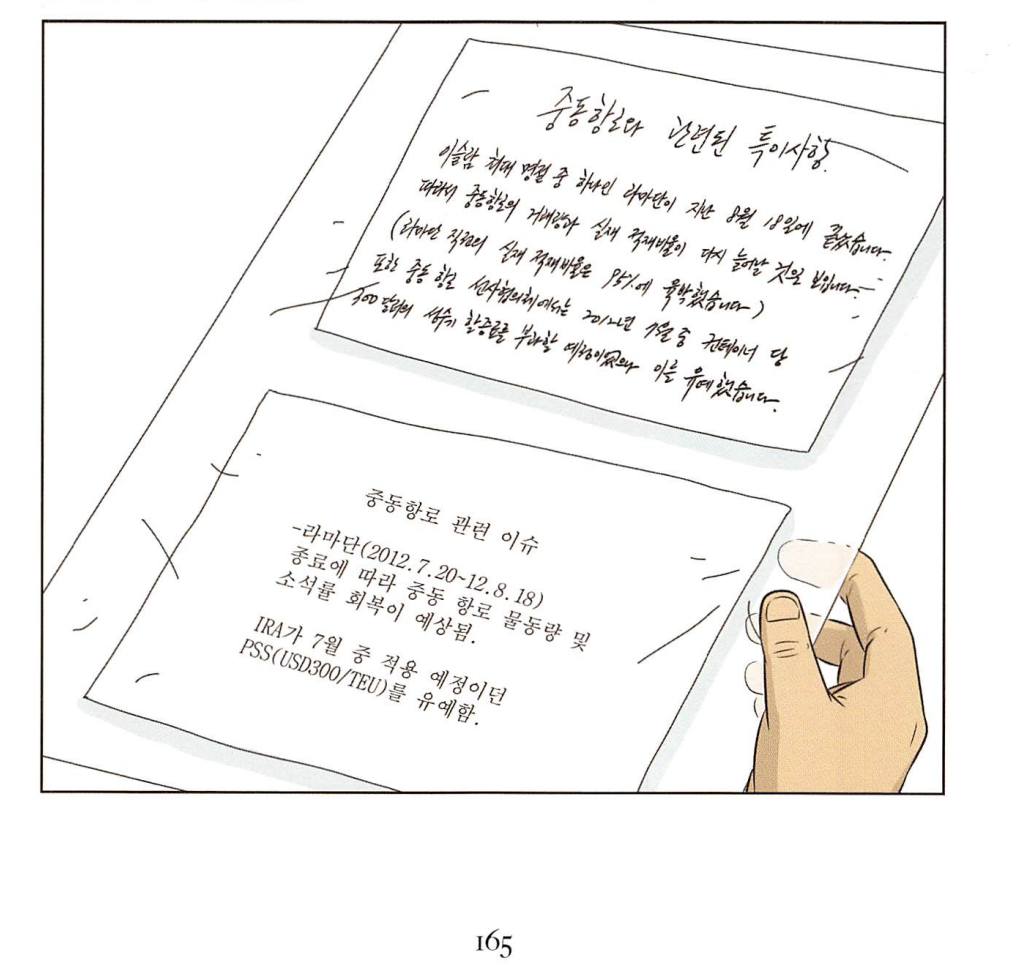 중동항로와 관련된 특이사항.
이슬람 최대 명절 중 하나인 라마단이 지난 8월 18일에 끝났습니다.
따라서 중동항로의 거래량과 실재 적재비율이 다시 늘어날 것으로 보입니다.
(라마단 직전의 실재 적재비율은 95%에 육박했습니다)
또한 중동 항로 선사협의체에서는 2012년 7월 중 컨테이너 당
300달러의 성수기 할증료를 부과할 예정이었으나 이를 유예했습니다.
중동항로 관련 이슈
-라마단(2012.7.20~12.8.18)
종료에 따라 중동 항로 물동량 및
소석률 회복이 예상됨.
IRA가 7월 중 적용 예정이던
PSS(USD300/TEU)를 유예함.
165